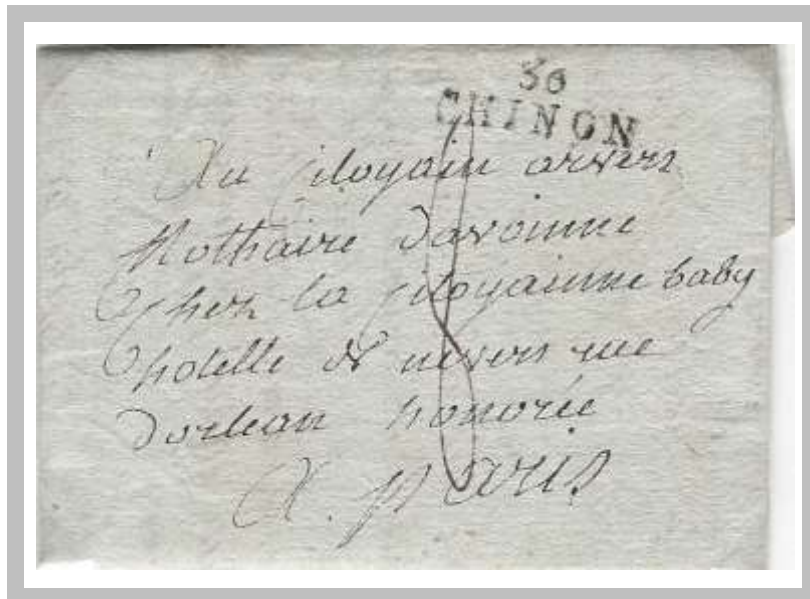 36
CHINON
Au Citoyain arvers
Nothaire davoinne
Chez la Citoyainne baby
hotelle de nevers rue
dorlean honorée
A. paris